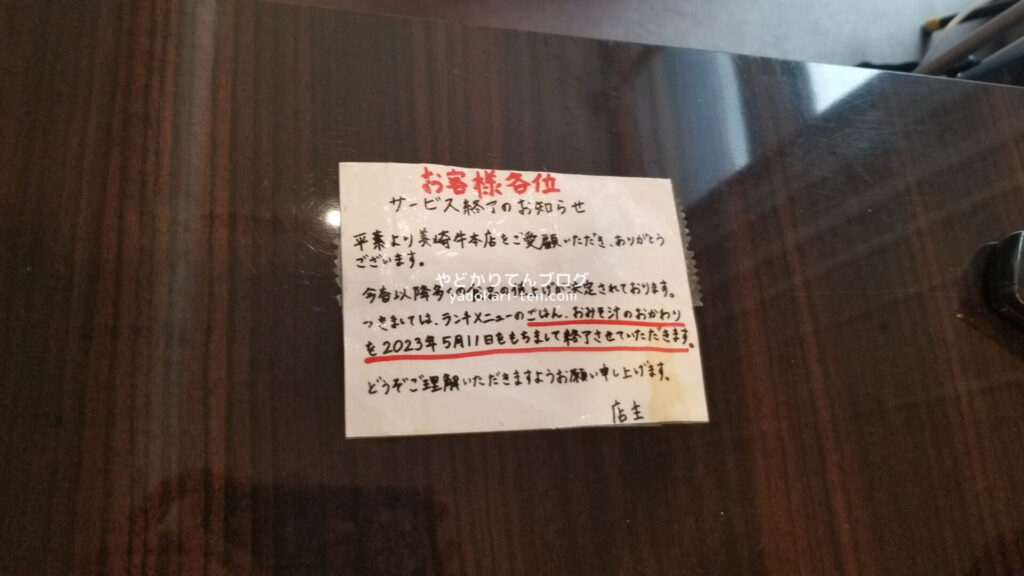 お客様各位
サービス終了のお知らせ
平素より美崎牛本店をご愛顧いただき、ありがとう
ございます。
やどかりてんブログ
yadokari-ten.com
今春以降多くの の値上げが決定されております。
つきましては、ランチメニューのごはん、おみそ汁のおかわり
を2023年5月11日をもちまして終了させていただきます。
どうぞご理解いただきますようお願い申し上げます。
店主